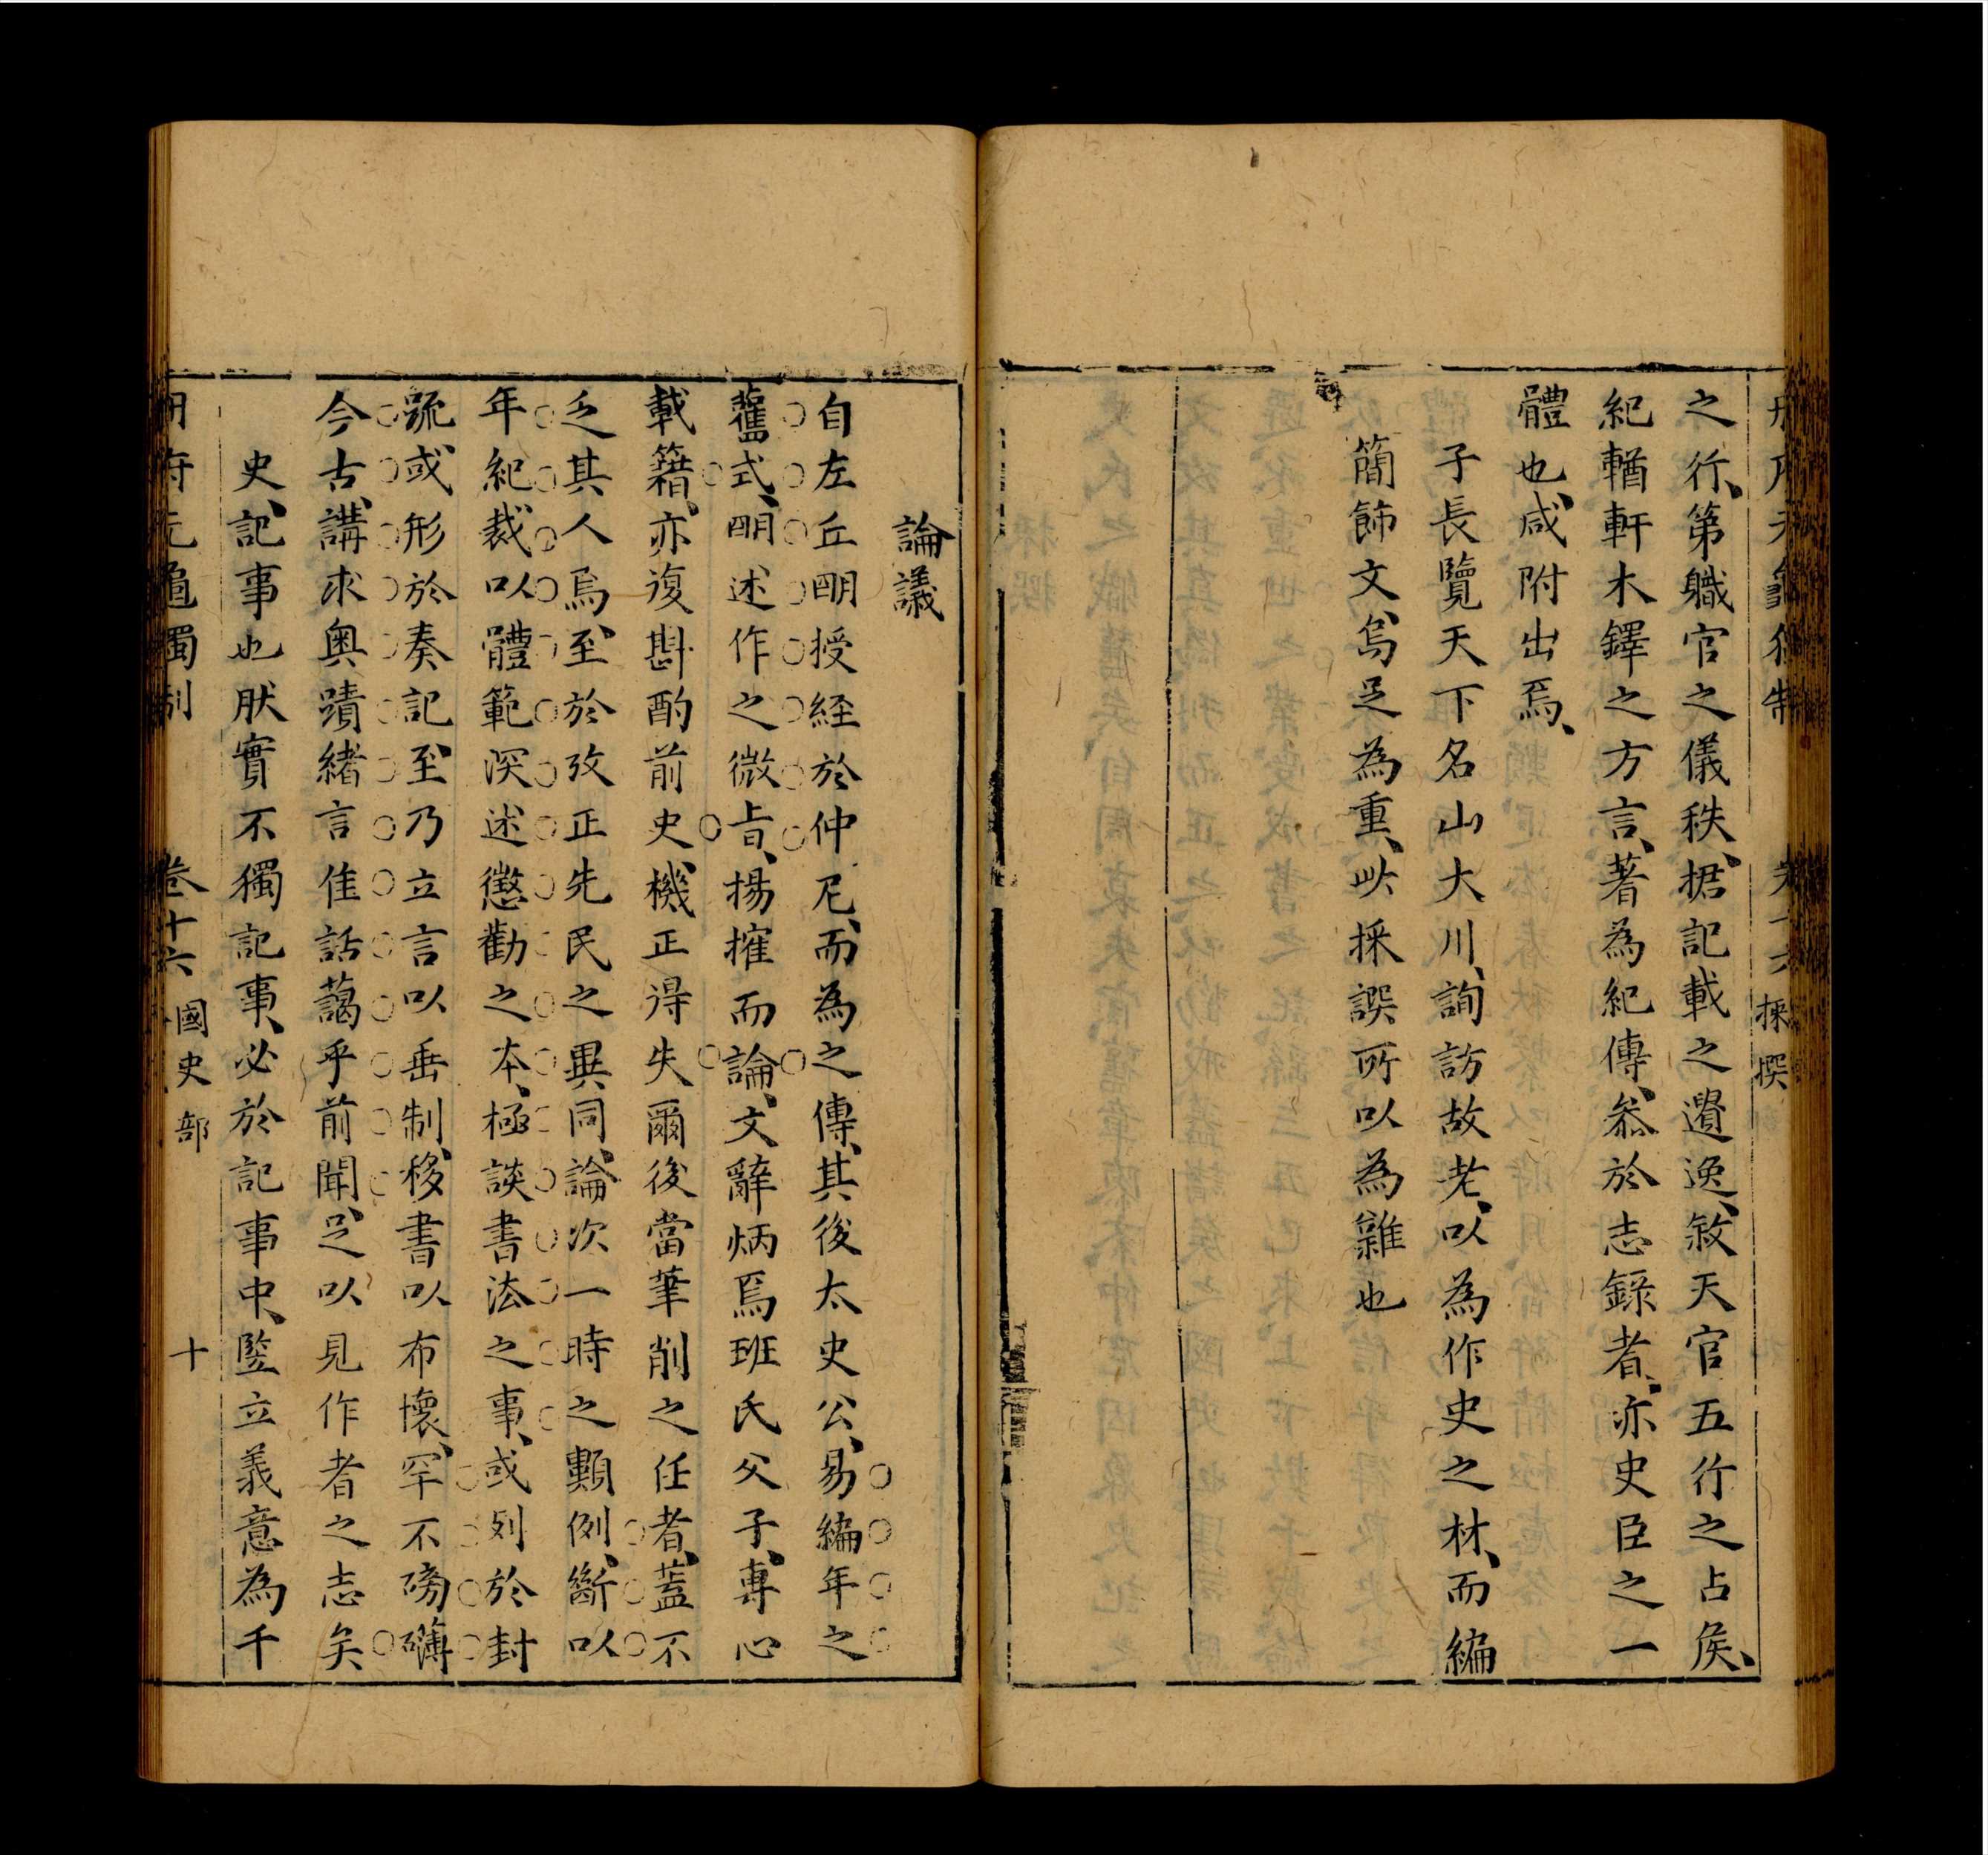 冊府元龜獨制 卷十六 採撰
之行、第職官之儀秩、据記載之遺逸、敘天官五行之占矦、
紀輶軒木鐸之方言、著為紀傳、叅於志錄者、亦史臣之一
體也、咸附出焉、
子長覽天下名山大川、詢訪故老、以為作史之林、而編
簡飾文、烏足為重、此採譔所以為難也
論議
自左丘明授経於仲尼、而為之傳、其後太史公、易編年之
舊式、明述作之微旨、揚搉而論、文辭炳焉班氏父子、專心
載籍、亦復斟酌前史、機正得失爾後當筆削之任者、蓋不
乏其人焉、至於攷正先民之異同、論次一時之類例、斷以
年紀、裁以體範、深述懲勸之本、極談書法之事、或列於封
䟽、或形於奏記、至乃立言以垂制、移書以布懷、罕不磅礴
今古、講求奥蹟緒言佳話藹乎前聞、足以見作者之志矣
史、記事也肰實不獨記事、必於記事中、竪立義意為千
冊府元龜獨制 卷十六 國史部 十